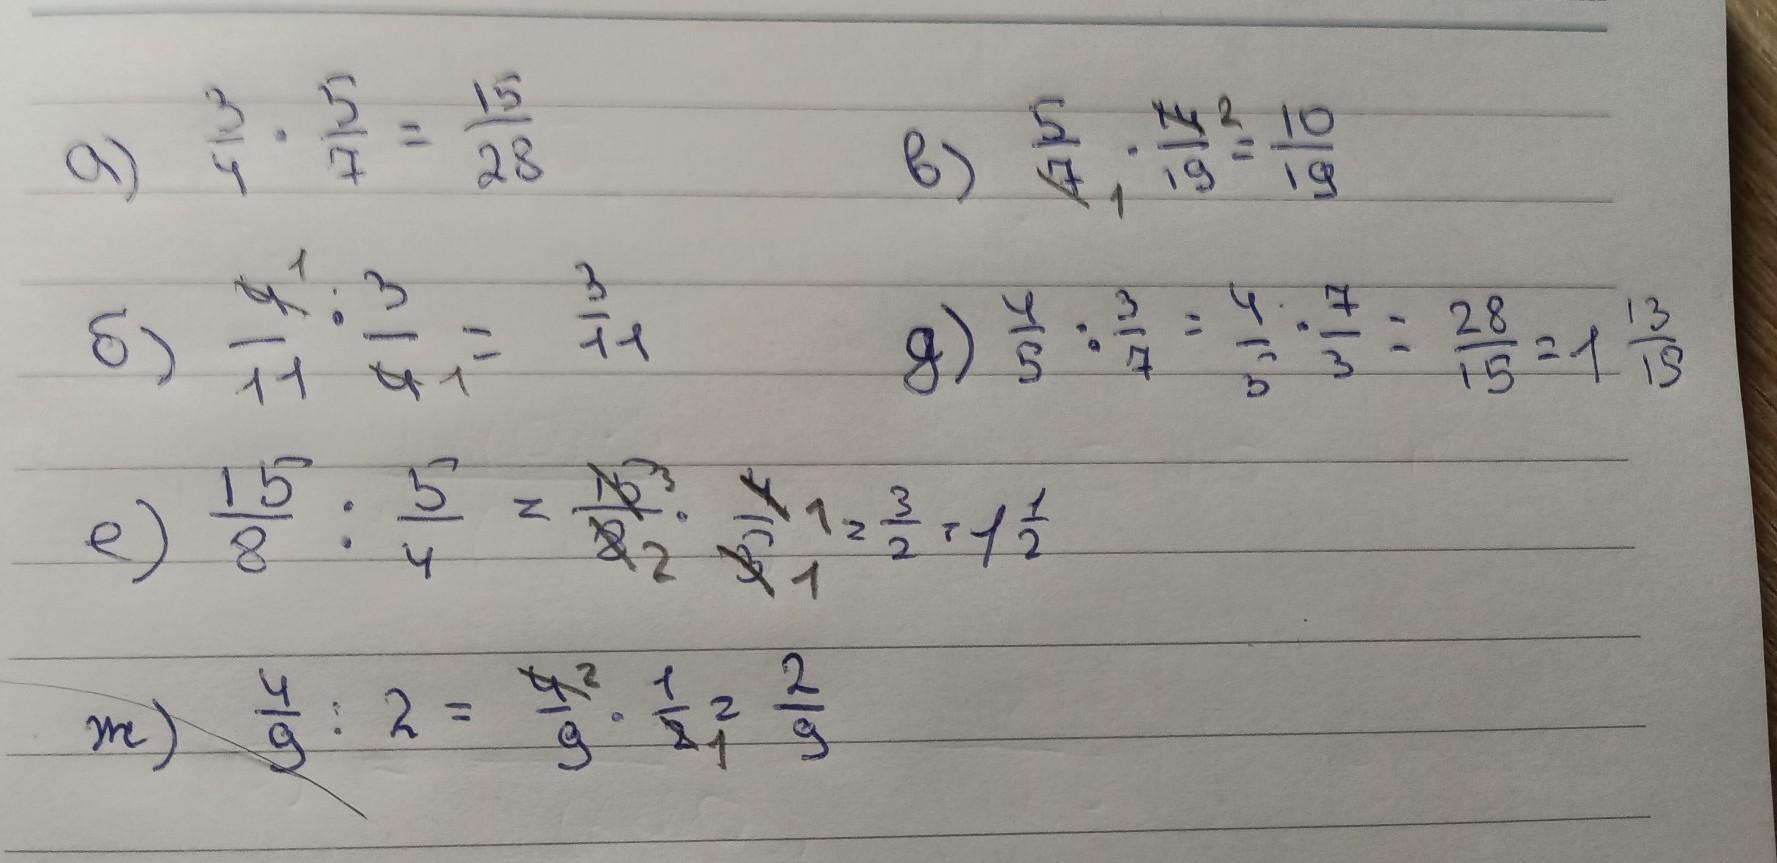 а) 3/4 · 5/7 = 15/28
в) 5/7 1 · 14/19 2 = 10/19
б) 4/11 1 : 3/4 1 = 3/11
д) 4/5 : 3/7 = 4/5 · 7/3 = 28/15 = 1 13/15
е) 15/8 : 5/4 = 15/8 3 2 · 4/5 1 1 = 3/2 = 1 1/2
ж) 4/9 : 2 = 4/9 2 · 1/2 1 = 2/9